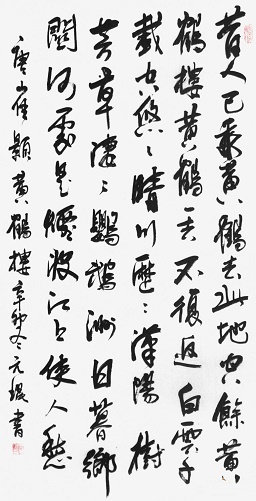 昔人已乘黃鶴去此地空餘黃
鶴樓黃鶴一去不復返白雲千
載空悠〻晴川歷〻漢陽樹
芳草淒〻鸚鵡洲日暮鄉
關何處是煙波江上使人愁
唐崔顥黃鶴樓辛卯冬元書